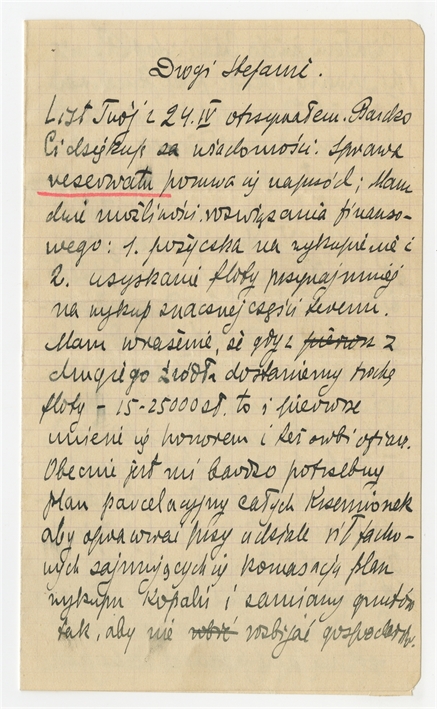 Drogi Stefanie.
List Twój z 24.IV otrzymałem. Bardzo
Ci dziękuję za wiadomości. Sprawa
reserwatu posuwa się napszód; Mam
dwie możliwości rozwiązania finanso-
wego: 1. pożyczka na wykupienie i
2. uzyskanie floty przynajmniej
na wykup znacznej części terenu.
Mam wrażenie, że gdy z pierwsz z
drugiego źródła dostaniemy trochę
floty – 15-25000 zł. to i pierwsze
uniesie się honorem i też zrobi ofiarę.
Obecnie jest mi bardzo potrzebny
plan parcelacyjny całych Krzemionek
aby opracować przy udziale sił facho-
wych zajmujących się komasacją plan
wykupu kopalń i zamiany gruntów
tak, aby nie robić rozbijać gospodarstw.